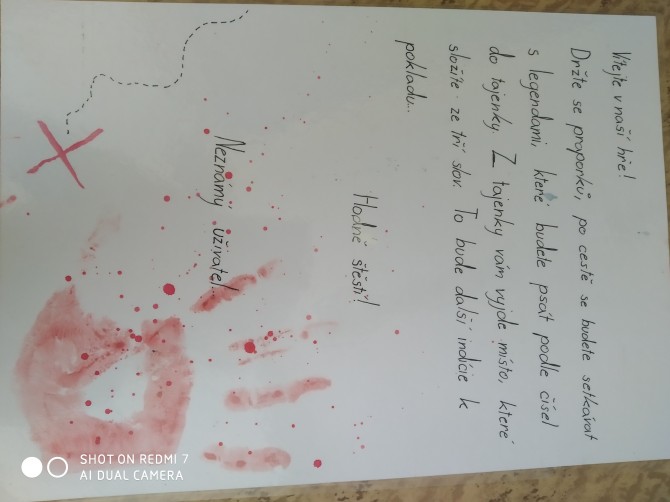 Vítejte v naší hře!
Držte se praporků, po cestě se budete setkávat
s legendami, které budete psát podle čísel
do tajenky. Z tajenky vám vyjde místo, které
složíte ze tří slov. To bude další indície k
pokladu.
Hodně štěstí!
Neznámý uživatel.
SHOT ON REDMI 7
AI DUAL CAMERA